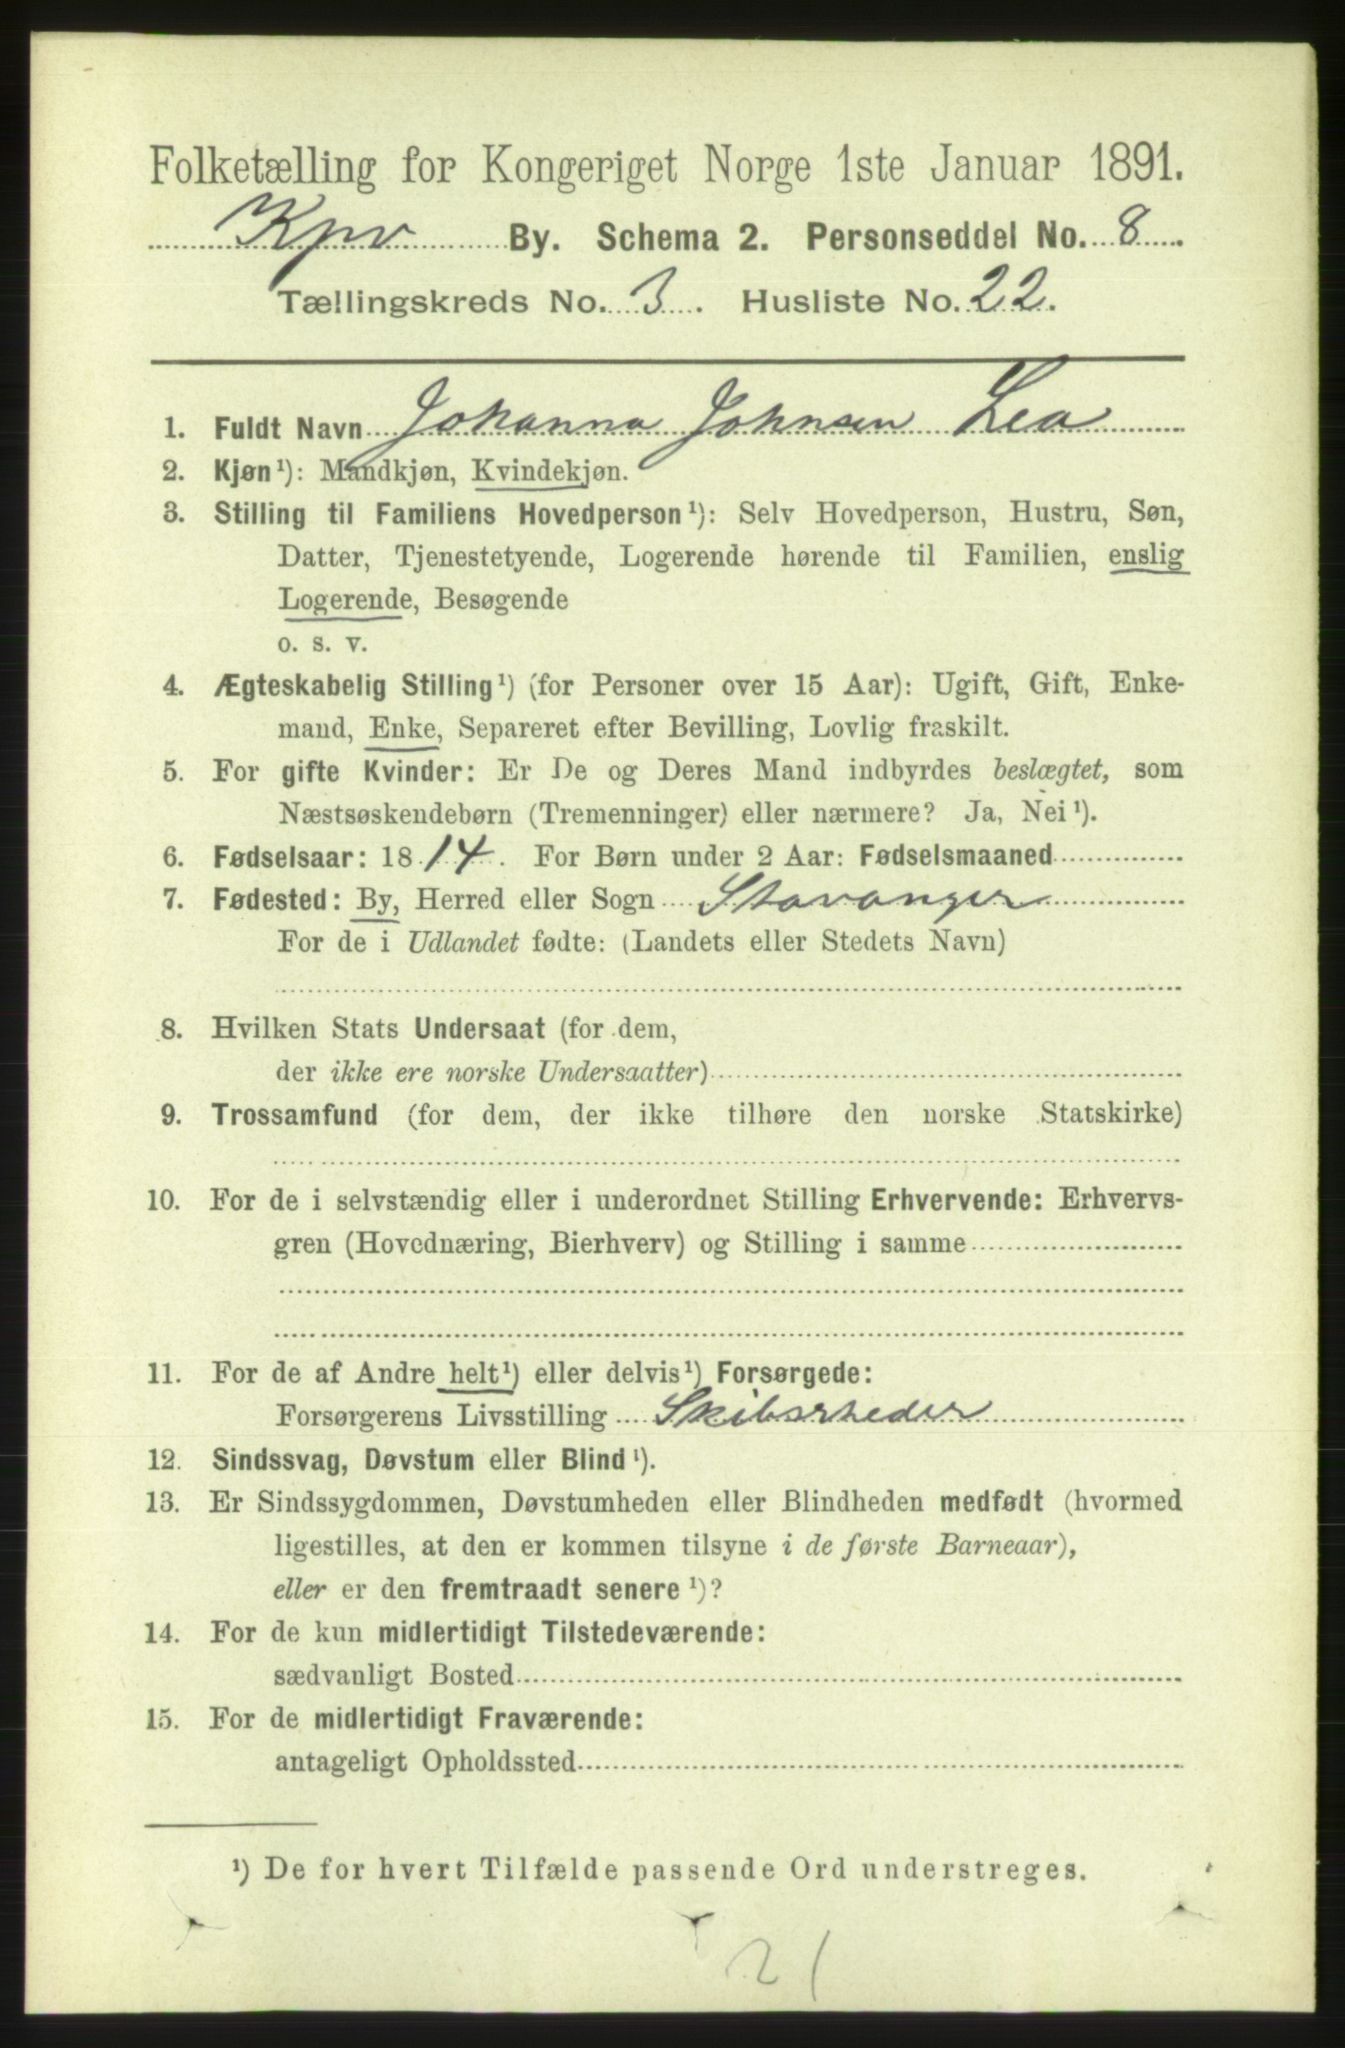 Folketælling for Kongeriget Norge 1ste Januar 1891.
Kprv By. Schema 2. Personseddel No. 8.
Tællingskreds No. 3. Husliste No. 22.
1. Fuldt Navn Johanna Johnsen Lea
2. Kjøn¹): Mandkjøn, Kvindekjøn.
3. Stilling til Familiens Hovedperson¹): Selv Hovedperson, Hustru, Søn,
Datter, Tjenestetyende, Logerende hørende til Familien, enslig
Logerende, Besøgende
o. s. v.
4. Ægteskabelig Stilling¹) (for Personer over 15 Aar): Ugift, Gift, Enke-
mand, Enke, Separeret efter Bevilling, Lovlig fraskilt.
5. For gifte Kvinder: Er De og Deres Mand indbyrdes beslægtet, som
Næstsøskendebørn (Tremenninger) eller nærmere? Ja, Nei¹).
6. Fødselsaar: 1814. For Børn under 2 Aar: Fødselsmaaned
7. Fødested: By, Herred eller Sogn Stavanger
For de i Udlandet fødte: (Landets eller Stedets Navn)
8. Hvilken Stats Undersaat (for dem,
der ikke ere norske Undersaatter)
9. Trossamfund (for dem, der ikke tilhøre den norske Statskirke)
10. For de i selvstændig eller i underordnet Stilling Erhvervende: Erhvervs-
gren (Hovednæring, Bierhverv) og Stilling i samme
11. For de af Andre helt¹) eller delvis¹) Forsørgede:
Forsørgerens Livsstilling Skibsrheder
12. Sindssvag, Døvstum eller Blind¹).
13. Er Sindssygdommen, Døvstumheden eller Blindheden medfødt (hvormed
ligestilles, at den er kommen tilsyne i de første Barneaar),
eller er den fremtraadt senere¹)?
14. For de kun midlertidigt Tilstedeværende:
sædvanligt Bosted
15. For de midlertidigt Fraværende:
antageligt Opholdssted
¹) De for hvert Tilfælde passende Ord understreges.
21